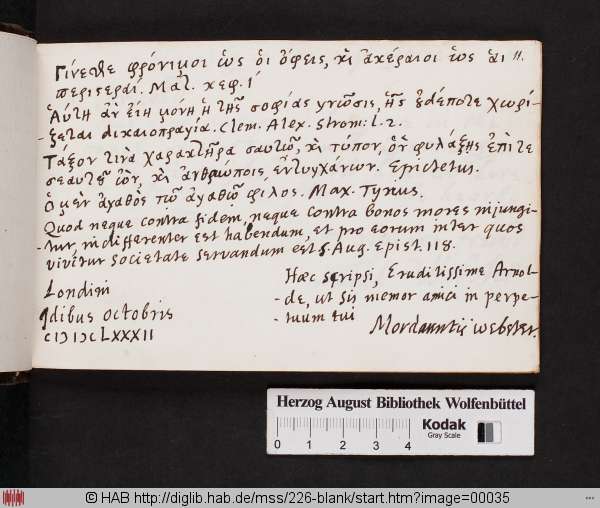 Γίνεσθε φρόνιμοι ὡς ὁι ὄφεις, κὶ ἀκέραιοι ὡς ἁι
περιστεραί. Ματ. κεφ. ί
Ἁύτη ἀν ἐίη μόνη ἡ τῆς σοφίας γνῶσις, ἧς ȣδέποτε χωρί-
-ζεται δικαιοπραγία. Clem. Alex. Strom: l. 2.
Τάξον τινὰ χαρακτῆρα σαυτῶ, κὶ τύπον, ὃν φυλάξης ἐπὶ τε
σεαυτȣ͂ ὢν, κὶ ἀνθρώποις ἐντυγχάνων. Epictetus.
Ὁ μὲν ἀγαθὸς τῶ ἀγαθῶ φίλος. Max. Tyrius.
Quod neque contra fidem, neque contra bonos mores injungi-
-tur, indifferenter est habendum, et pro eorum inter quos
vivitur societate servandum est. S. Aug. Epist. 118.
Hæc scripsi, Eruditissime Arnol-
-de, ut sis memor amici in perpe-
-tuum tui
Mordauntij Webster.
Londini
Idibus Octobris
CIↃ IↃC LXXXII
Herzog August Bibliothek Wolfenbüttel
0 1 2 3 4
Kodak
Gray Scale
© HAB http://diglib.hab.de/mss/226-blank/start.htm?image=00035